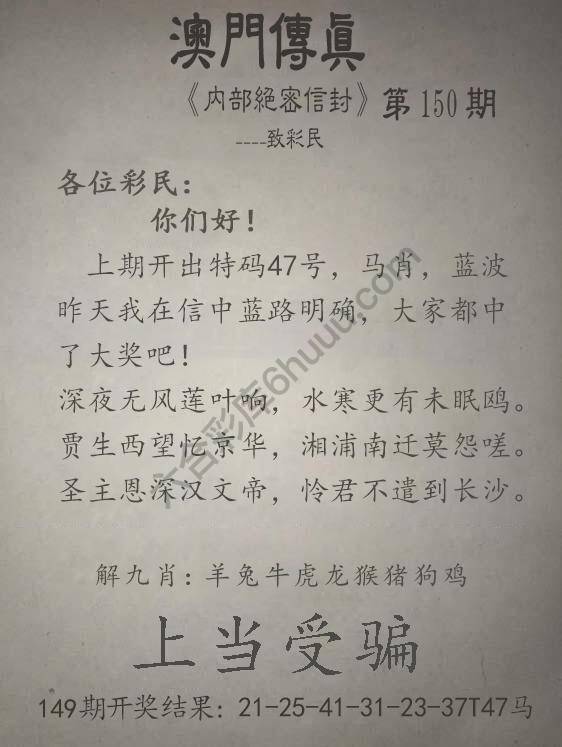 澳門傳眞
《内部絕密信封》第150期
----致彩民
各位彩民：
你们好！
上期开出特码47号，马肖，蓝波
昨天我在信中蓝路明确，大家都中
了大奖吧！
深夜无风莲叶响，水寒更有未眠鸥。
贾生西望忆京华，湘浦南迁莫怨嗟。
圣主恩深汉文帝，怜君不遣到长沙。
六合彩库6huuu.com
解九肖：羊兔牛虎龙猴猪狗鸡
上当受骗
149期开奖结果：21-25-41-31-23-37T47马